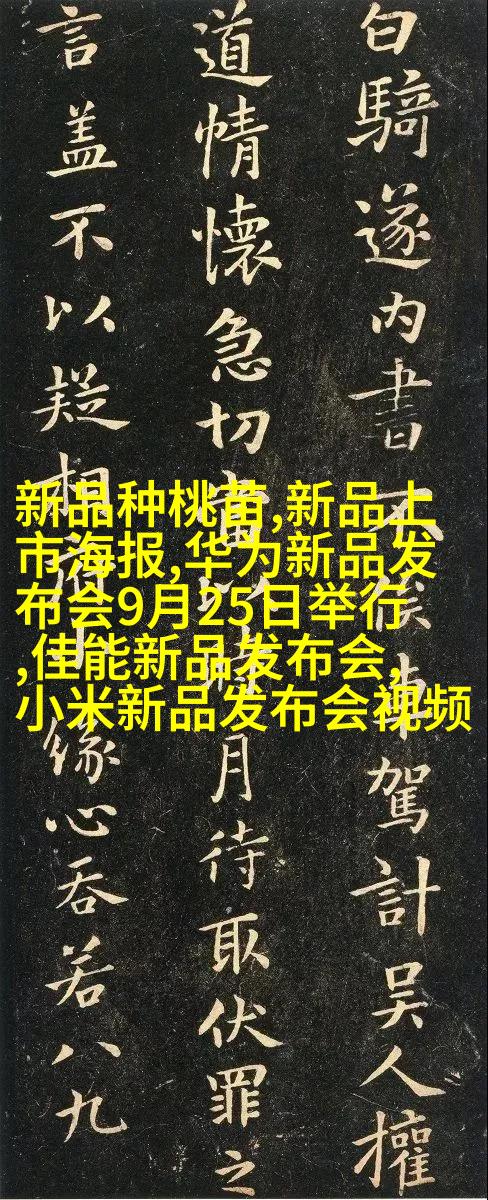 新品种桃苗,新品上
市海报,华为新品发
布会9月25日举行
,佳能新品发布会,
小米新品发布会视频
白騎遂内書不俟車駕計吳人權
道情懷急切當以時月待取伏罪之
言盖不以疑相府緣心吞若八九